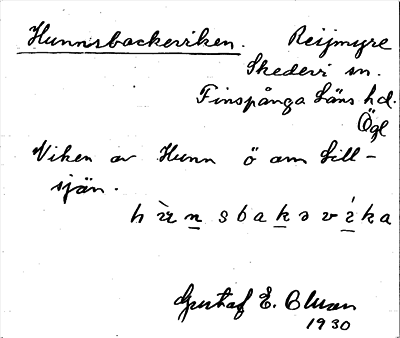 Hunnsbackeviken. Reijmyre
Skedevi sn.
Finspånga Läns hd.
Ögl
Viken av Hunn ö om Lill-
sjön.
Gustaf E. Olsson
1930